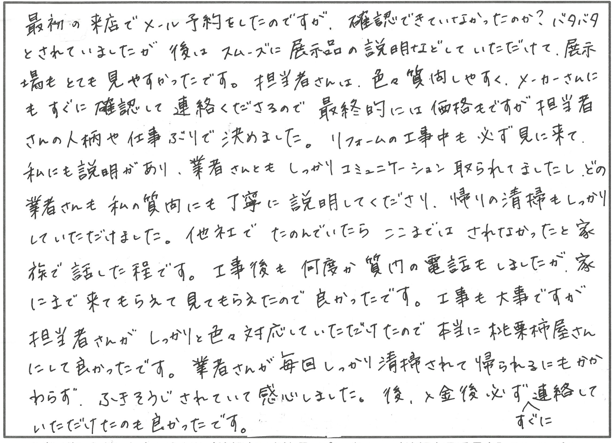 最初の来店でメール予約をしたのですが、確認できていなかったのか？バタバタ
とされていましたが後はスムーズに展示品の説明などしていただけて、展示
場もとても見やすかったです。担当者さんは、色々質問しやすく、メーカーさんに
もすぐに確認して連絡くださるので最終的には価格もですが担当者
さんの人柄や仕事ぶりで決めました。リフォームの工事中も必ず見に来て、
私にも説明があり、業者さんともしっかりコミュニケーション取られてましたし、どの
業者さんも私の質問にも丁寧に説明してくださり、帰りの清掃もしっかり
していただけました。他社でたのんでいたらここまではされなかったと家
族で話した程です。工事後も何度か質問の電話もしましたが、家
にまで来てもらえて見てもらえたので良かったです。工事も大事ですが
担当者さんがしっかりと色々対応していただけたので本当に桃栗柿屋さん
にして良かったです。業者さんが毎回しっかり清掃されて帰られるにもかか
わらず、ふきそうじされていて感心しました。後、〆金後必ずすぐに連絡して
いただけたのも良かったです。